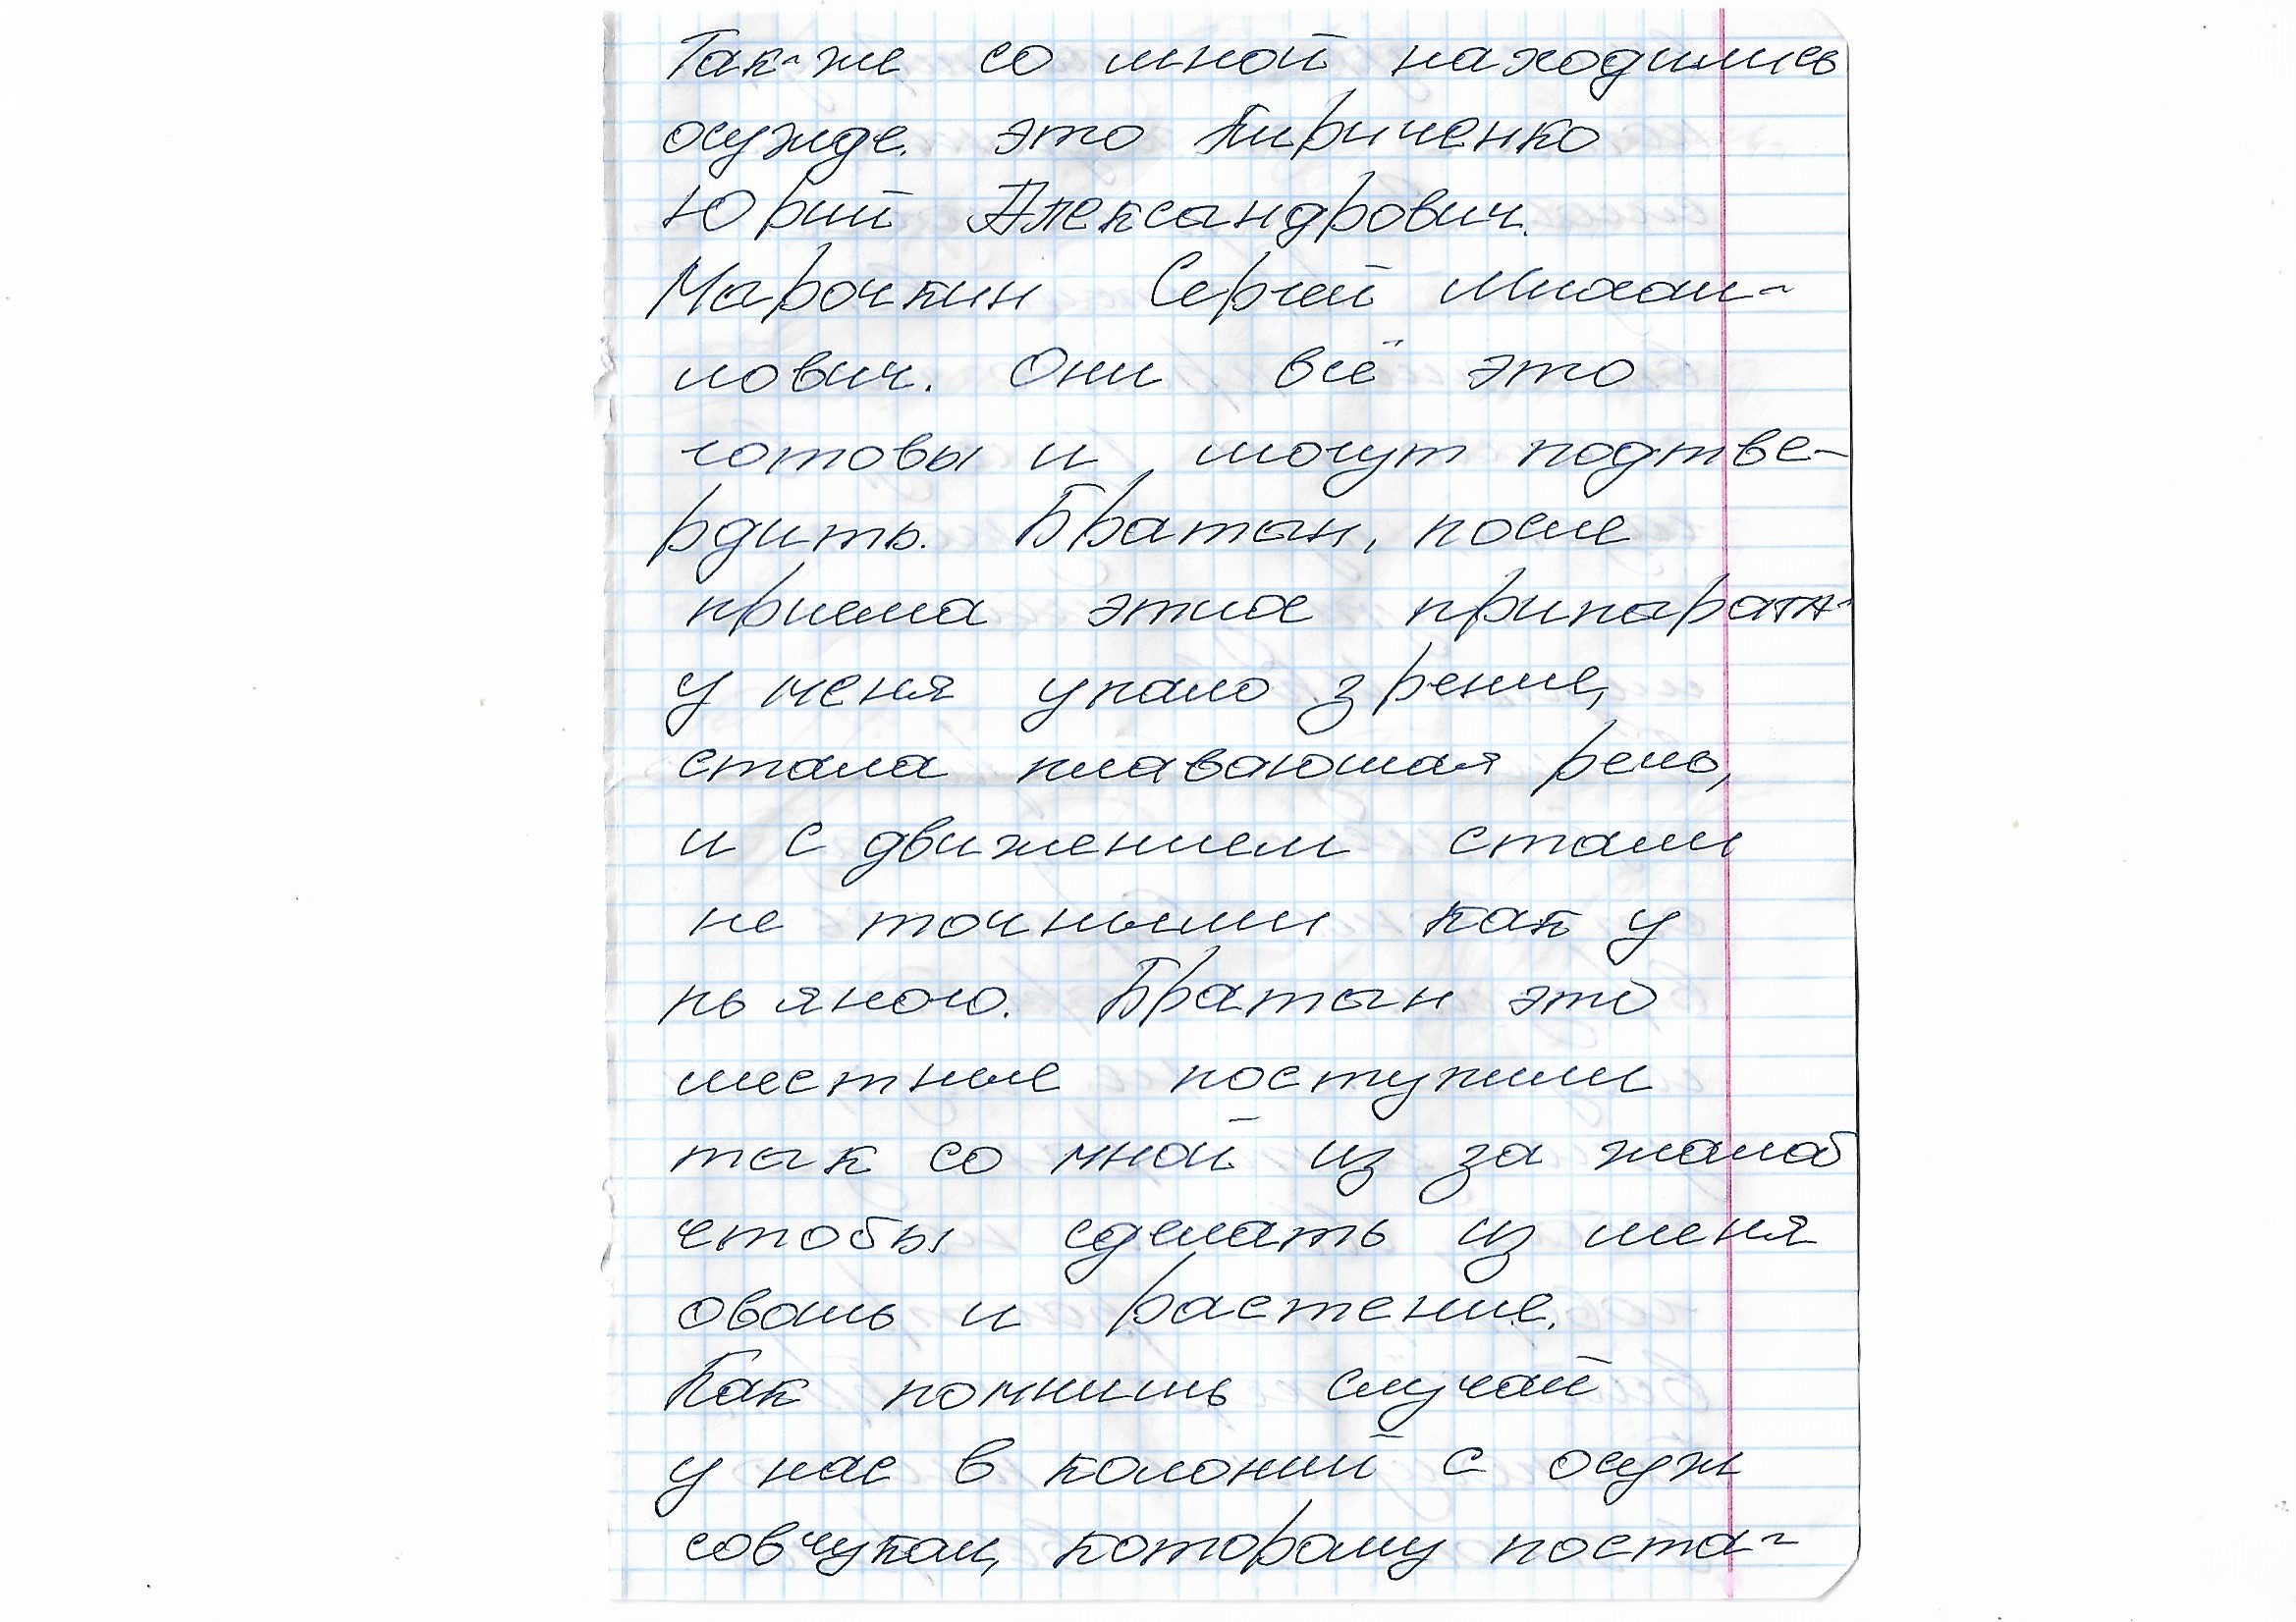 Так-же со мной находились
осужде. это Кириченко
Юрий Александрович.
Марочкин Сергей Михаи-
лович. Они всё это
готовы и могут подтве-
рдить. Братан, после
приема этих припарат-
у меня упало зрение,
стала плавающая речь,
и с движением стали
не точными как у
пьяного. Братан это
местные поступили
так со мной из за жалоб
чтобы сделать из меня
овощь и растение.
Как помнишь случай
у нас в колоний с осуж
совчуком, которому поста-